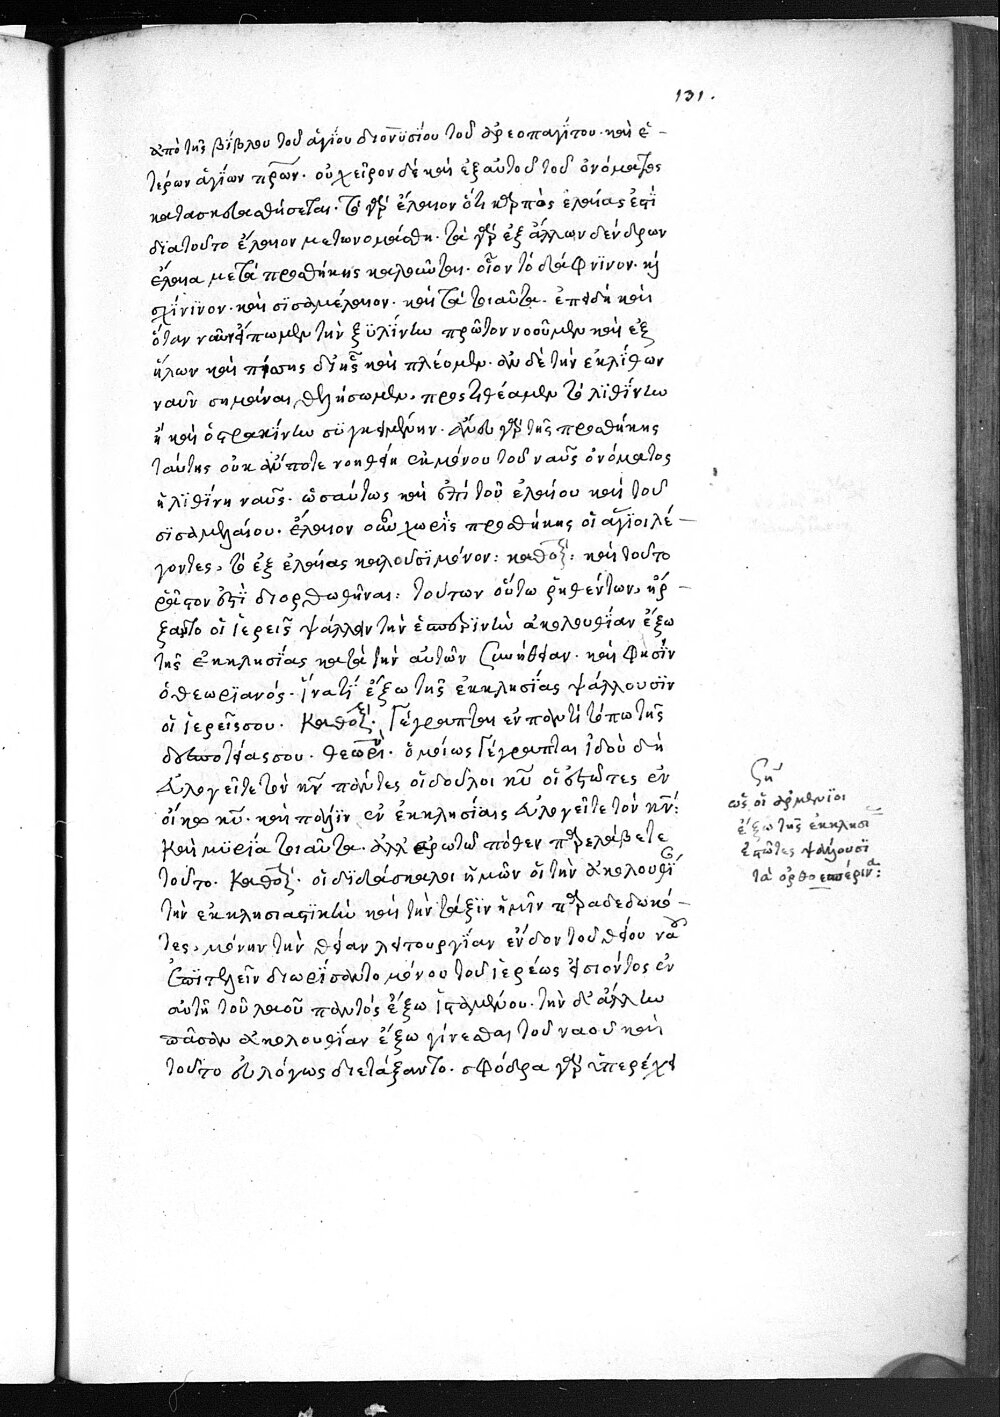 131.
ἀπὸ τῆς βίβλου τοῦ ἁγίου διονϋσίου τοῦ ἀρεοπαγίτου. καὶ ἑ-
τέρων ἁγίων πρων. οὐ χεῖρον δὲ καὶ ἐξ αὐτοῦ τοῦ ὀνόματος
κατασκευασθήσεται. τὸ γὰρ ἔλαιον ὅτι καρπὸς ἐλαίας ἐστὶ
διατοῦτο ἔλαιον μετωνομάσθη. τὰ γὰρ ἐξ ἄλλων δένδρων
ἔλαια μετὰ προσθήκης καλοῦνται. οἷον τὸ δάφνϊνον. κὴ
σχίνϊνον. καὶ σϊσαμέλαιον. καὶ τὰ τοιαῦτα. ἐπειδὴ καὶ
ὅταν ναῦν εἴπωμεν τὴν ξϋλίνην πρῶτον νοοῦμεν καὶ ἐξ
ἥλων καὶ πίσσης δι' ἧς καὶ πλέομεν. ἂν δὲ τὴν ἐκ λίθων
ναῦν σημᾶναι θελήσωμεν, προστιθέαμεν τὸ λϊθίνην
ἢ καὶ ὀστρακίνην συγκειμένην. ἄνευ γὰρ τῆς προσθήκης
ταύτης οὐκ ἄν ποτε νοηθείη ἐκ μόνου τοῦ ναῦς ὀνόματος
ἡ λϊθίνη ναῦς. ὡσαύτως καὶ ἐπὶ τοῦ ἐλαίου καὶ τοῦ
σϊσαμελαίου. ἔλαιον οὖν χωρὶς προσθήκης οἱ ἅγϊοι λέ-
γοντες, τὸ ἐξ ἐλαίας καλοῦσϊ μόνον: καθολ: καὶ τοῦτο
ῥᾷστον ἐστὶ διορθωθῆναι: τούτων οὕτω ῥηθέντων, ἤρ-
ξαντο οἱ ἱερεῖς ψάλλειν τὴν ἑσπερϊνὴν ἀκολουθίαν ἔξω
τῆς ἐκκλησίας κατὰ τὴν αὐτῶν συνήθειαν. καὶ φησὶν
ὁ θεωρϊανός. ἵνατί ἔξω τῆς ἐκκλησίας ψάλλουσϊν
οἱ ἱερεῖς σου. Καθολ. Γέγραπται ἐν παντὶ τόπω τῆς
δεσποτείας σου. θεωρι. ὁμοίως Γέγραπται ἰδοὺ δὴ
εὐλογεῖτε τὸν κν πάντες οἱ δοῦλοι κυ οἱ ἑστῶτες ἐν
οἴκω κυ. καὶ πάλϊν ἐν ἐκκλησίαις εὐλογεῖτε τὸν κν:
καὶ μϋρία τοιαῦτα. ἀλλ' ἐρωτῶ πόθεν παρελάβετε
τοῦτο. Καθολ. οἱ δϊδάσκαλοι ἡμῶν οἱ τὴν ἀκολουθϊ
τὴν ἐκκλησιαστϊκὴν καὶ τὴν τάξϊν ἡμῖν παραδεδωκό-
τες, μόνην τὴν θείαν λειτουργίαν ἔνδον τοῦ θείου ναου
ἐπϊτελεῖν διωρίσαντο μόνου τοῦ ἱερέως εἰσιόντος ἐν
αὐτῆ τοῦ λαοῦ παντός ἔξω ἱσταμένου. τὴν δ' ἄλλην
πᾶσαν ἀκολουθίαν ἔξω γίνεσθαι τοῦ ναοῦ καὶ
τοῦτο εὐλόγως διετάξαντο. σφόδρα γὰρ ὑπερέχει
ση
ὡς οἱ ἀρμένϊοι
ἔξω τῆς ἐκκλησι
ἑστῶτες ψάλουσϊ
τὰ ὀρθοεσπέρινα: